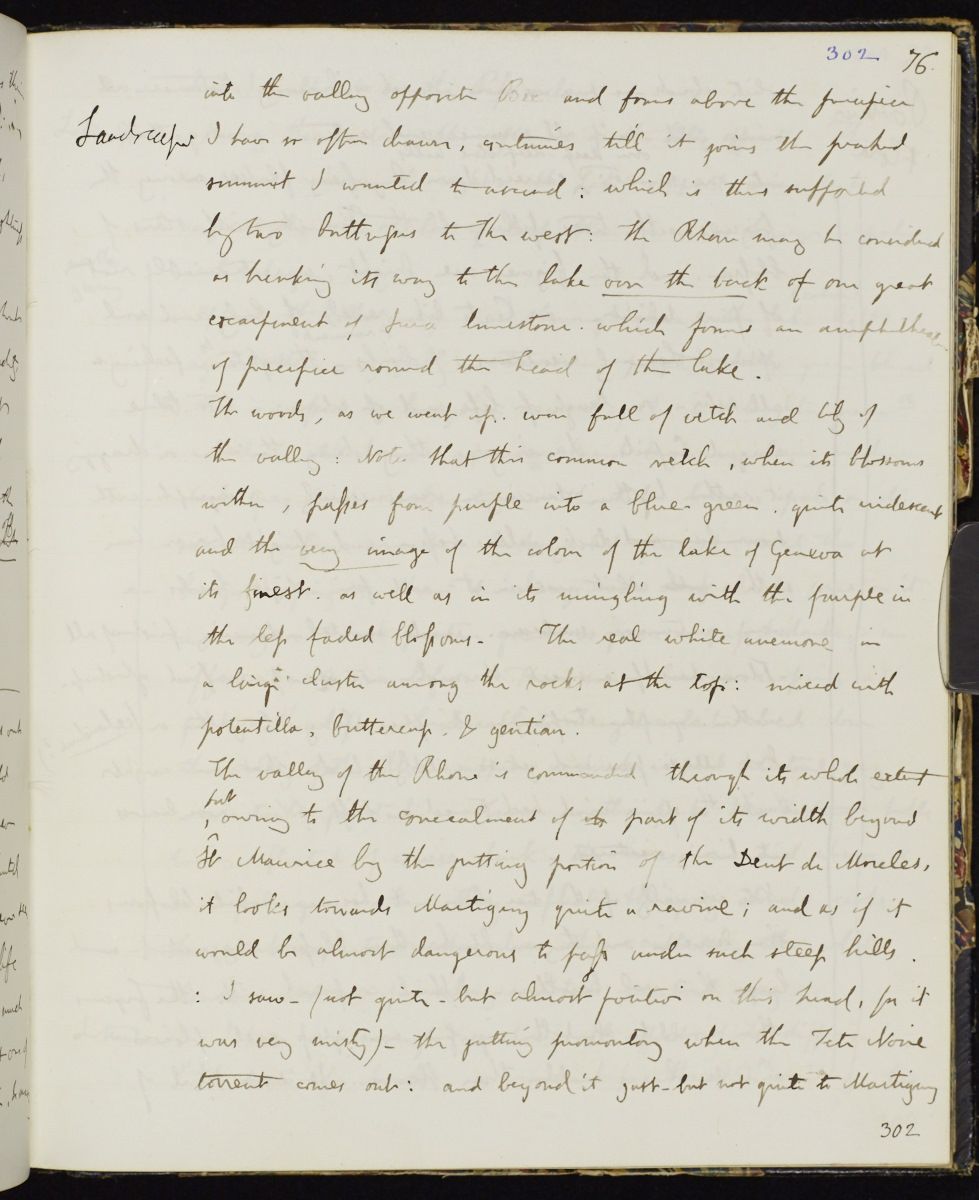 302 76.
into the valley opposite Bex and forms above the precipice
Landscape I have so often drawn, continues till it joins the peaked
summit I wanted to ascend: which is thus supported
by two buttresses to the west: the Rhone may be considered
as breaking its way to the lake over the back of one great
escarpment of Jura limestone. which forms an amphitheatre
of precipice round the head of the lake.
The woods, as we went up. were full of vetch and lily of
the valley: Note that this common vetch, when its blossoms
wither, passes from purple into a blue green. quite iridescent
and the very image of the colour of the lake of Geneva at
its finest. as well as in its mingling with the purple in
the less faded blossoms- The real white anemone in
a large cluster among the rocks at the top: mixed with
potentilla, buttercup. & gentian.
The valley of the Rhone is commanded through its whole extent
but
, owing to the concealment of its part of its width beyond
St Maurice by the jutting portion of the Dent de Morcles,
it looks towards Martigny quite a ravine; and as if it
would be almost dangerous to pass under such steep hills.
: I saw- (not quite- but almost positive on this head, for it
was very misty)- the jutting promontory where the Tete Noire
torrent comes out: and beyond it just- but not quite to Martigny
302